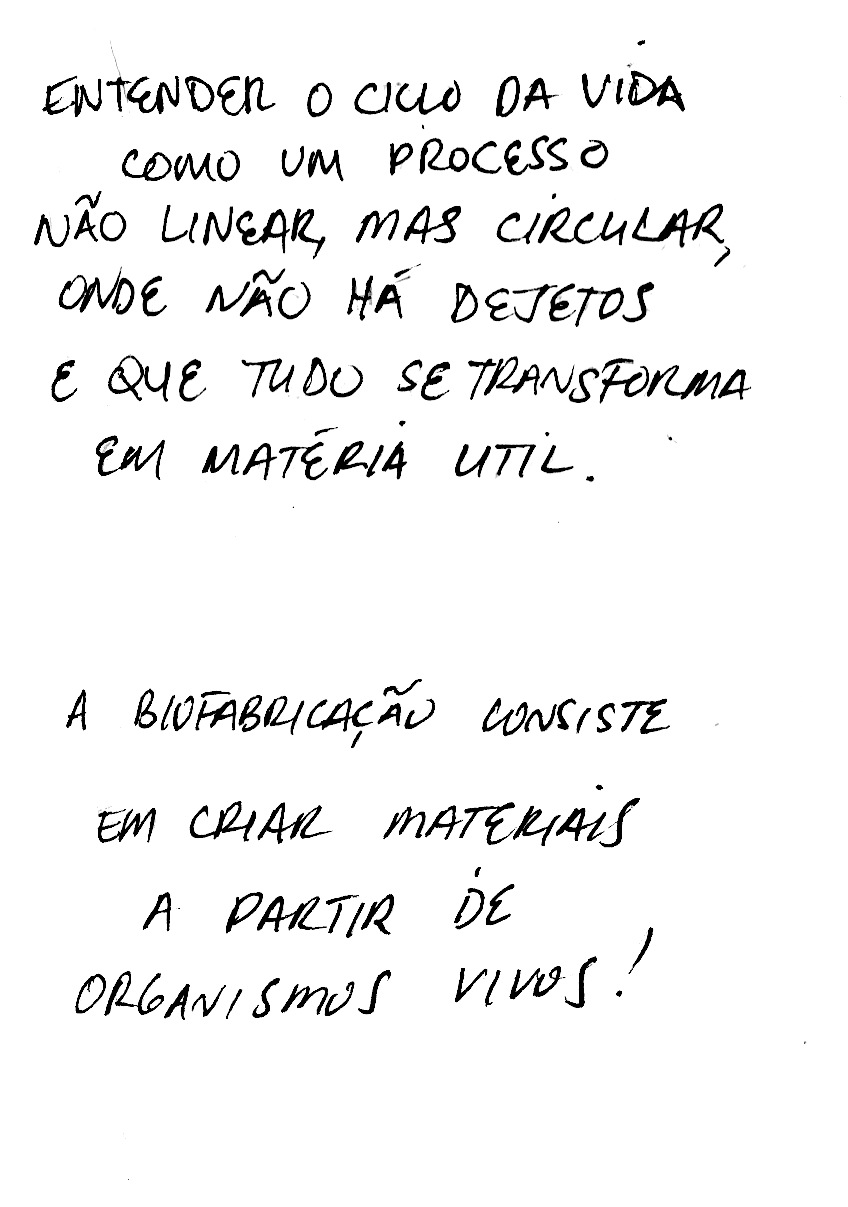 ENTENDER O CICLO DA VIDA
COMO UM PROCESSO
NÃO LINEAR, MAS CIRCULAR,
ONDE NÃO HÁ DEJETOS
E QUE TUDO SE TRANSFORMA
EM MATÉRIA UTIL.
A BIOFABRICAÇÃO CONSISTE
EM CRIAR MATERIAIS
A PARTIR DE
ORGANISMOS VIVOS!